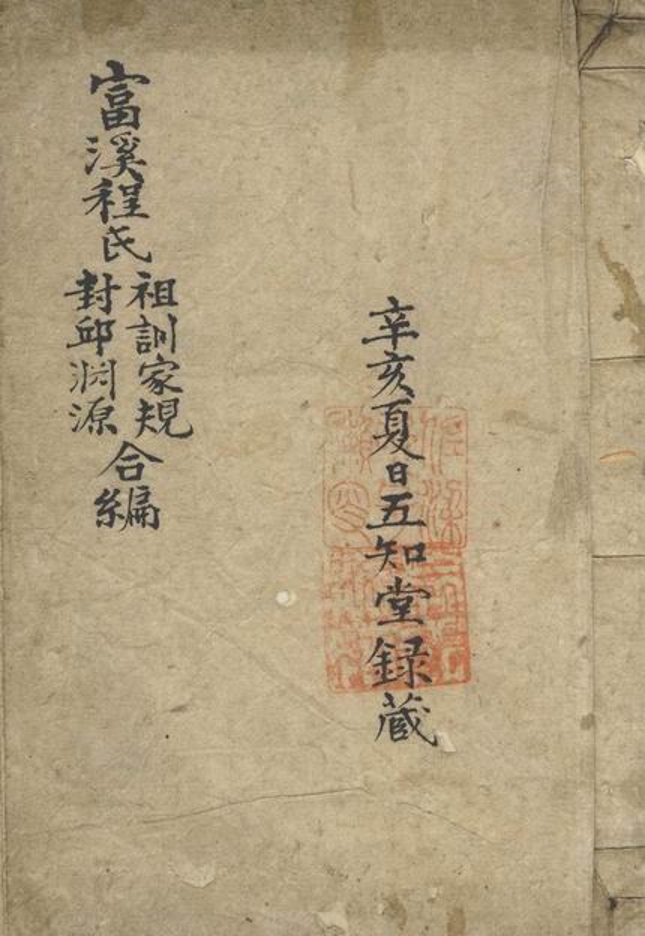 辛亥夏日五知堂録蔵
富溪程氏
祖訓家規
封邱渊源
合編